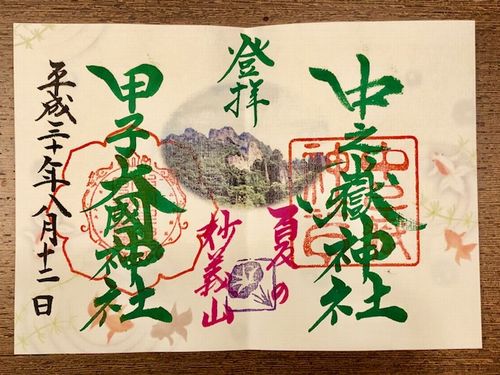 中之嶽神社
登拝
夏の
妙義山
甲子大國神社
平成三十年八月十二日